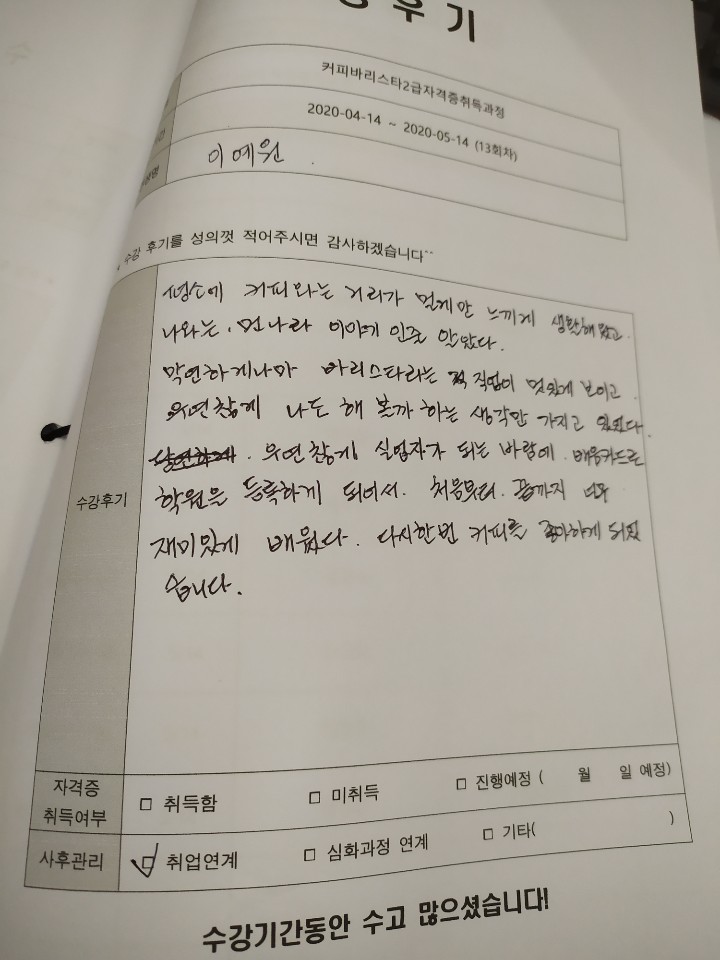 강 후 기
커피바리스타2급자격증취득과정
2020-04-14 ~ 2020-05-14 (13회차)
이예원
수강 후기를 성의껏 적어주시면 감사하겠습니다^^
수강후기
평소에 커피와는 거리가 멀게만 느끼게 생활해왔고.
나와는. 먼나라 이야기 인줄 알았다.
막연하게나마 바리스타라는 직업이 멋있게 보이고.
우연찮게 나도 해 볼까 하는 생각만 가지고 있었다.
우연찮게 실업자가 되는 바람에. 배움카드로
학원을 등록하게 되어서. 처음부터. 끝까지 너무
재미있게 배웠다. 다시한번 커피를 좋아하게 되었
습니다.
자격증
취득여부
□ 취득함 □ 미취득 □ 진행예정 ( 월 일 예정)
사후관리
☑ 취업연계 □ 심화과정 연계 □ 기타( )
수강기간동안 수고 많으셨습니다!